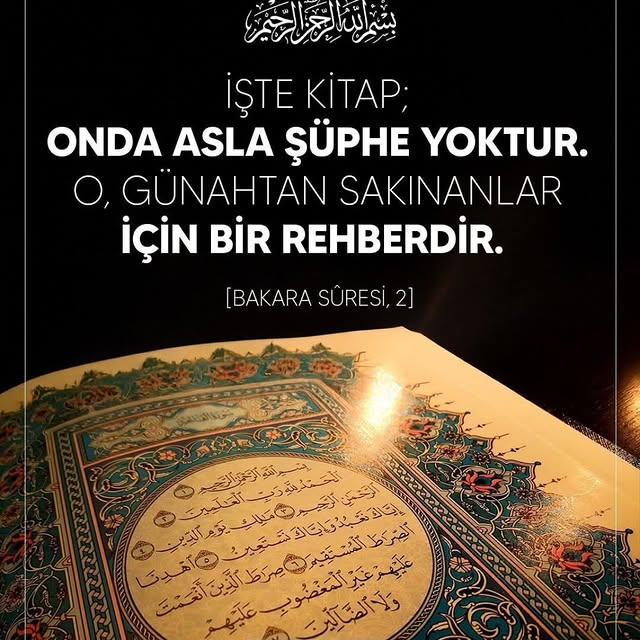 بسم الله الرحمن الرحيم
İŞTE KİTAP;
ONDA ASLA ŞÜPHE YOKTUR.
O, GÜNAHTAN SAKINANLAR
İÇİN BİR REHBERDİR.
[BAKARA SÛRESİ, 2]
بِسْمِ اللَّهِ الرَّحْمَٰنِ الرَّحِيمِ ١
الْحَمْدُ لِلَّهِ رَبِّ الْعَالَمِينَ ٢
الرَّحْمَٰنِ الرَّحِيمِ ٣ مَالِكِ يَوْمِ الدِّينِ ٤
إِيَّاكَ نَعْبُدُ وَإِيَّاكَ نَسْتَعِينُ ٥ اهْدِنَا
الصِّرَاطَ الْمُسْتَقِيمَ ٦ صِرَاطَ الَّذِينَ أَنْعَمْتَ
عَلَيْهِمْ غَيْرِ الْمَغْضُوبِ عَلَيْهِمْ
وَلَا الضَّالِّينَ